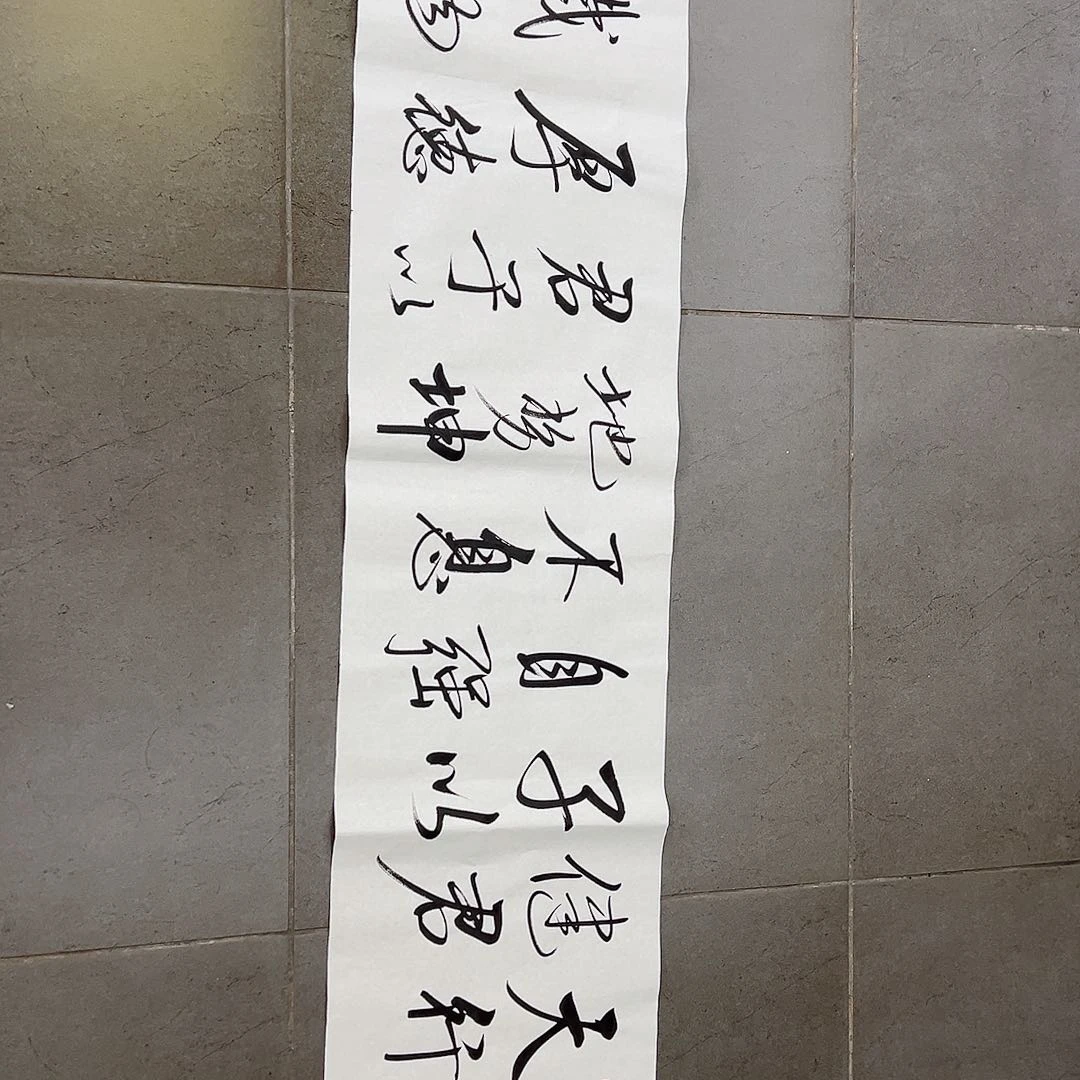 天行
健君
子以
自强
不息
地势坤
君子以
厚德
载物